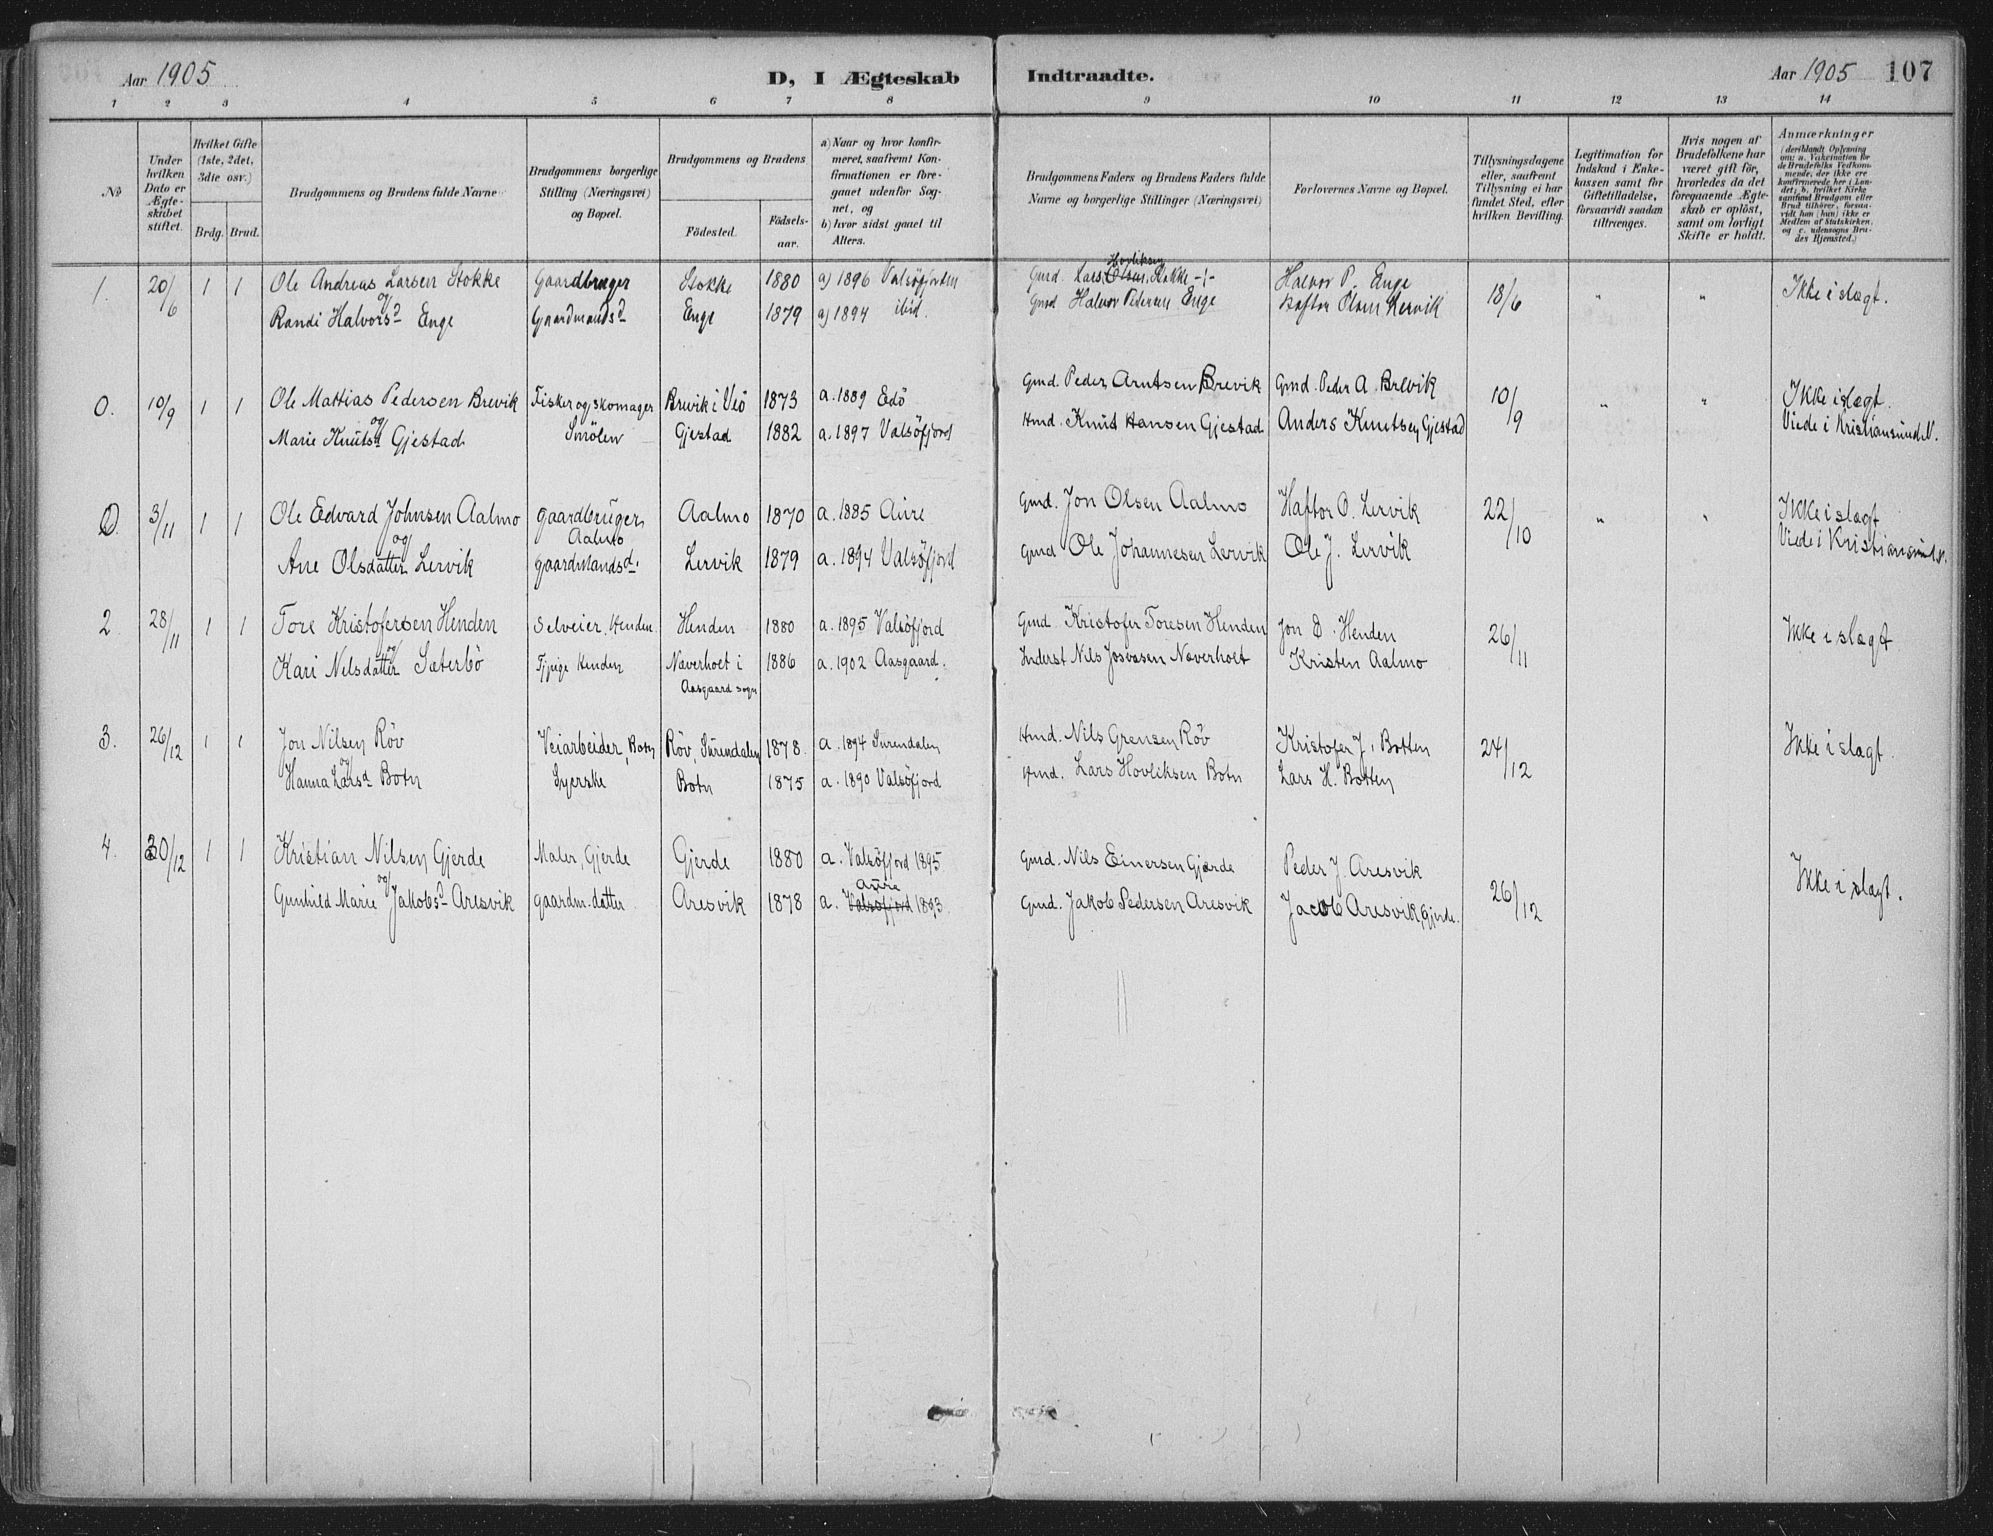 Aar 1905 D, I Ægteskab Indtraadte. Aar 1905 107
1 2 3 4 5 6 7 8 9 10 11 12 13 14
№
Under hvilken Dato er Ægteskabet stiftet.
Hvilket Gifte (1ste, 2det, 3die osv.)
Brdg. Brud.
Brudgommens og Brudens fulde Navne
Brudgommens borgerlige Stilling (Næringsvei) og Bopæl.
Brudgommens og Brudens
Födested. Födselsaar.
a) Naar og hvor konfirmeret, saafremt Konfirmationen er foregaaet udenfor Sognet, og
b) hvor sidst gaaet til Alters.
Brudgommens Faders og Brudens Faders fulde Navne og borgerlige Stillinger (Næringsvei)
Forlovernes Navne og Bopæl.
Tillysningsdagene eller, saafremt Tillysning ei har fundet Sted, efter hvilken Bevilling.
Legitimation for Indskud i Enkekassen samt for Giftetilladelse, forsaavidt saadan tiltrænges.
Hvis nogen af Brudefolkene har været gift för, hvorledes da det foregaaende Ægteskab er oplöst, samt om lovligt Skifte er holdt.
Anmærkninger (deriblandt Oplysning om: a. Vakcination for de Brudefolks Vedkommende, der ikke ere konfirmerede her i Landet; b. hvilket Kirkesamfund Brudgom eller Brud tilhörer, forsaavidt han (hun) ikke er Medlem af Statskirken, og c. udensogns Brudes Hjemsted.)
1. 20/6 1 1 Ole Andreas Larsen Stokke Gaardbruger Stokke 1880 a) 1896 Valsöfjorden Gmd. Lars Olsen Hovliksen Stokke -!- Halvor P. Enge 18/6 " " Ikke i slægt.
og
Randi Halvorsd Enge Gaardmandsd Enge 1879 a) 1894 ibid. Gmd Halvor Pedersen Enge Haftor Olsen Lervik
0. 10/9 1 1 Ole Mattias Pedersen Brevik Fisker og skomager Brevik i Veö 1873 a. 1889 Edö Gmd. Peder Arntsen Brevik Gmd. Peder A. Brevik 10/9 " " Ikke i slægt.
og
Marie Knutsd Gjestad Smölen Gjestad 1882 a. 1897 Valsöfjord Hmd. Knut Hansen Gjestad Anders Knutsen Gjestad Viede i Kristiansund N.
0 3/11 1 1 Ole Edvard Johnsen Aalmo gaardbruger, Aalmo Aalmo 1870 a. 1885 Aure Gmd. Jon Olsen Aalmo Haftor O. Lervik 22/10 " " Ikke i slægt
og
Ane Olsdatter Lervik gaardmandsd. Lervik 1879 a. 1894 Valsöfjord Gmd Ole Johannesen Lervik Ole J. Lervik Viede i Kristiansund N.
2 28/11 1 1 Tore Kristofersen Henden Selveier, Henden Henden 1880 a. 1895 Valsöfjord Gmd. Kristofer Toresen Henden Jon E. Henden 26/11 Ikke i slægt
og
Kari Nilsdatter Sæterbö Tj.pige Henden Naverholt i Aasgaard sogn 1886 a. 1902 Aasgaard. Inderst Nils Josvasen Naverholt Kristen Aalmo
3. 26/12 1 1 Jon Nilsen Röv Veiarbeider, Botn Röv, Surendalen 1878. a. 1894 Surendalen Hmd. Nils Grensen Röv Kristofer J. Botten 24/12 Ikke i slægt.
og
Hanna Larsd Botn Syerske Botn 1875 a. 1890 Valsöfjord Hmd. Lars Hovliksen Botn Lars H. Botten
4. 30/12 1 1 Kristian Nilsen Gjerde Maler, Gjerde Gjerde 1880 a. Valsöfjord 1895 Gmd. Nils Einersen Gjærde Peder J. Aresvik 26/12 Ikke i slægt.
og
Gunhild Marie Jakobsd Aresvik gaardm. datter Aresvik 1878 a. Valsöfjord Aure 1893. Gmd. Jakob Pedersen Aresvik Jacob Aresvik, Gjerde.